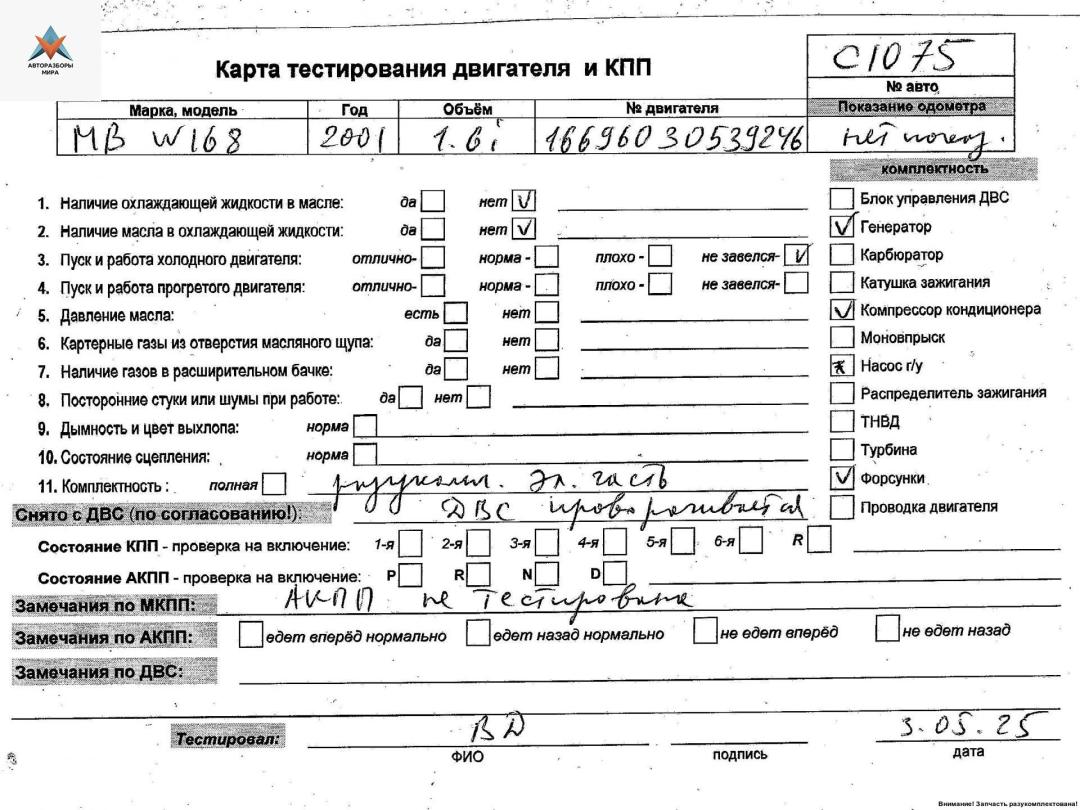 АВТОРАЗБОРЫ
МИРА
Карта тестирования двигателя и КПП
С1075
№ авто
Марка, модель Год Объём № двигателя Показание одометра
MB W168 2001 1.6i 16696030539246 нет показ.
комплектность
1. Наличие охлаждающей жидкости в масле: да нет V
Блок управления ДВС
2. Наличие масла в охлаждающей жидкости: да нет V
V Генератор
3. Пуск и работа холодного двигателя: отлично- норма - плохо - не завелся- V
Карбюратор
4. Пуск и работа прогретого двигателя: отлично- норма - плохо - не завелся-
Катушка зажигания
5. Давление масла: есть нет
V Компрессор кондиционера
6. Картерные газы из отверстия масляного щупа: да нет
Моновпрыск
7. Наличие газов в расширительном бачке: да нет
Насос г/у
8. Посторонние стуки или шумы при работе: да нет
Распределитель зажигания
9. Дымность и цвет выхлопа: норма
ТНВД
10. Состояние сцепления: норма
Турбина
11. Комплектность : полная разукомпл. Эл. часть
V Форсунки
Снято с ДВС (по согласованию!): ДВС проворачивается
Проводка двигателя
Состояние КПП - проверка на включение: 1-я 2-я 3-я 4-я 5-я 6-я R
Состояние АКПП - проверка на включение: P R N D
Замечания по МКПП: АКПП не тестирована
Замечания по АКПП: едет вперёд нормально едет назад нормально не едет вперёд не едет назад
Замечания по ДВС:
Тестировал: ВД 3.05.25
ФИО подпись дата
Внимание! Запчасть разукомплектована!